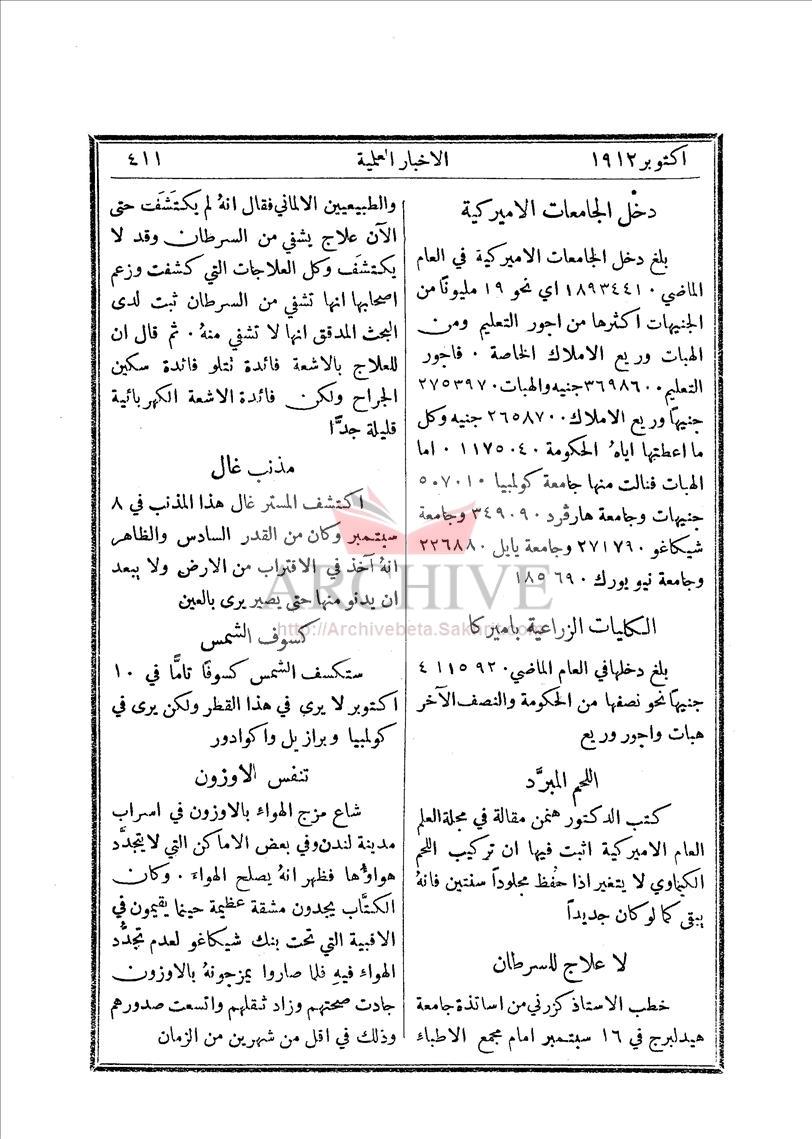 اكتوبر ١٩١٢
الاخبار العلمية
٤١١
دخل الجامعات الاميركية
بلغ دخل الجامعات الاميركية في العام
الماضي ١٨٩٣٤٤١٠ اي نحو ١٩ مليونًا من
الجنيهات اكثرها من اجور التعليم ومن
الهبات وريع الاملاك الخاصة ٠ فاجور
التعليم ٣٦٩٨٦٠٠ جنيه والهبات ٢٧٥٣٩٧٠
جنيهًا وريع الاملاك ٢٦٥٨٧٠٠ جنيه وكل
ما اعطتها اياهُ الحكومة ١١٧٥٠٤٠ ٠ اما
الهبات فنالت منها جامعة كولمبيا ٥٠٧٠١٠
جنيهات وجامعة هارڤرد ٣٤٩٠٩٠ وجامعة
شيكاغو ٢٧١٧٩٠ وجامعة يايل ٢٢٦٨٨٠
وجامعة نيو يورك ١٨٥٦٩٠
الكليات الزراعية باميركا
بلغ دخلها في العام الماضي ٤١١٥٩٢٠
جنيهًا نحو نصفها من الحكومة والنصف الآخر
هبات واجور وريع
اللحم المبرَّد
كتب الدكتور هنمن مقالة في مجلة العلم
العام الاميركية اثبت فيها ان تركيب اللحم
الكيماوي لا يتغير اذا حُفظ مجلودًا سنتين فانهُ
يبقى كما لو كان جديدًا
لا علاج للسرطان
خطب الاستاذ كزرني من اساتذة جامعة
هيدلبرج في ١٦ سبتمبر امام مجمع الاطباء
والطبيعيين الالماني فقال انهُ لم يكتَشَفَت حتى
الآن علاج يشفي من السرطان وقد لا
يكتشَف وكل العلاجات التي كشفت وزعم
اصحابها انها تشفي من السرطان ثبت لدى
البحث المدقق انها لا تشفي منهُ ٠ ثم قال ان
للعلاج بالاشعة فائدة نتلو فائدة سكين
الجراح ولكن فائدة الاشعة الكهربائية
قليلة جدًّا
مذنب غال
اكتشف المستر غال هذا المذنب في ٨
سبتمبر وكان من القدر السادس والظاهر
انهُ آخذ في الاقتراب من الارض ولا يبعد
ان يدنو منها حتى يصير يرى بالعين
كسوف الشمس
ستكسف الشمس كسوفًا تامًّا في ١٠
اكتوبر لا يرى في هذا القطر ولكن يرى في
كولمبيا وبرازيل واكوادور
تنفس الاوزون
شاع مزج الهواء بالاوزون في اسراب
مدينة لندن وفي بعض الاماكن التي لا يتجدَّد
هواؤها فظهر انهُ يصلح الهواء ٠ وكان
الكتَّاب يجدون مشقة عظيمة حينما يقيمون في
الاقبية التي تحت بنك شيكاغو لعدم تجدُّد
الهواء فيهِ فلما صاروا يمزجونهُ بالاوزون
جادت صحتهم وزاد ثقلهم واتسعت صدورهم
وذلك في اقل من شهرين من الزمان
ARCHIVE